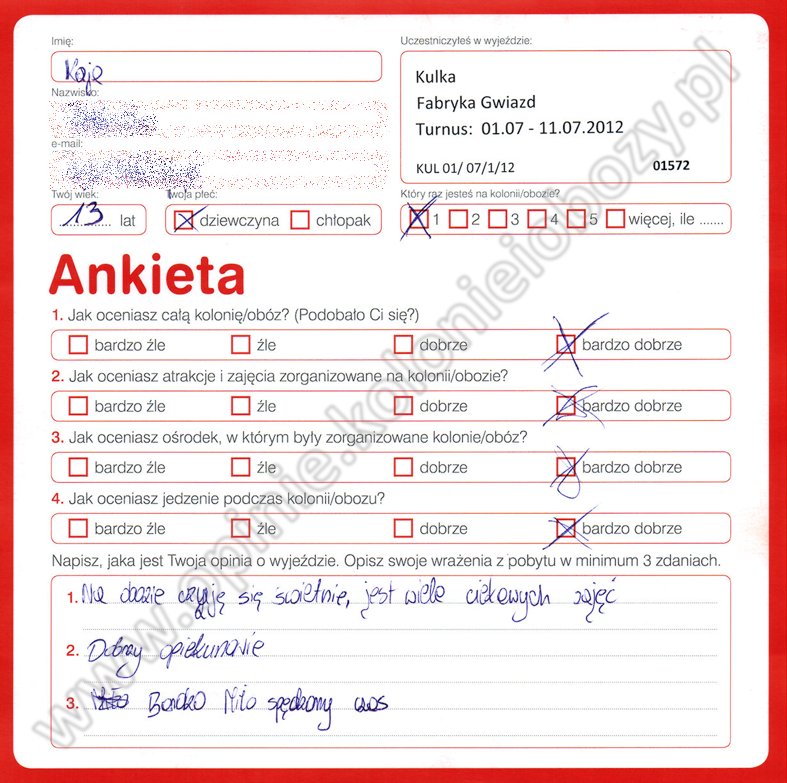 Imię:
Kaja
Nazwisko:
e-mail:
Twój wiek:
13 lat
Twoja płeć:
dziewczyna chłopak
Uczestniczyłeś w wyjeździe:
Kulka
Fabryka Gwiazd
Turnus: 01.07 - 11.07.2012
KUL 01/ 07/1/12 01572
Który raz jesteś na kolonii/obozie?
1 2 3 4 5 więcej, ile .......
Ankieta
1. Jak oceniasz całą kolonię/obóz? (Podobało Ci się?)
bardzo źle źle dobrze bardzo dobrze
2. Jak oceniasz atrakcje i zajęcia zorganizowane na kolonii/obozie?
bardzo źle źle dobrze bardzo dobrze
3. Jak oceniasz ośrodek, w którym były zorganizowane kolonie/obóz?
bardzo źle źle dobrze bardzo dobrze
4. Jak oceniasz jedzenie podczas kolonii/obozu?
bardzo źle źle dobrze bardzo dobrze
Napisz, jaka jest Twoja opinia o wyjeździe. Opisz swoje wrażenia z pobytu w minimum 3 zdaniach.
1. Na obozie czuję się świetnie, jest wiele ciekawych zajęć
2. Dobrzy opiekunowie
3. Bardzo Miło spędzony czas
www.opinie.kolonieiobozy.pl